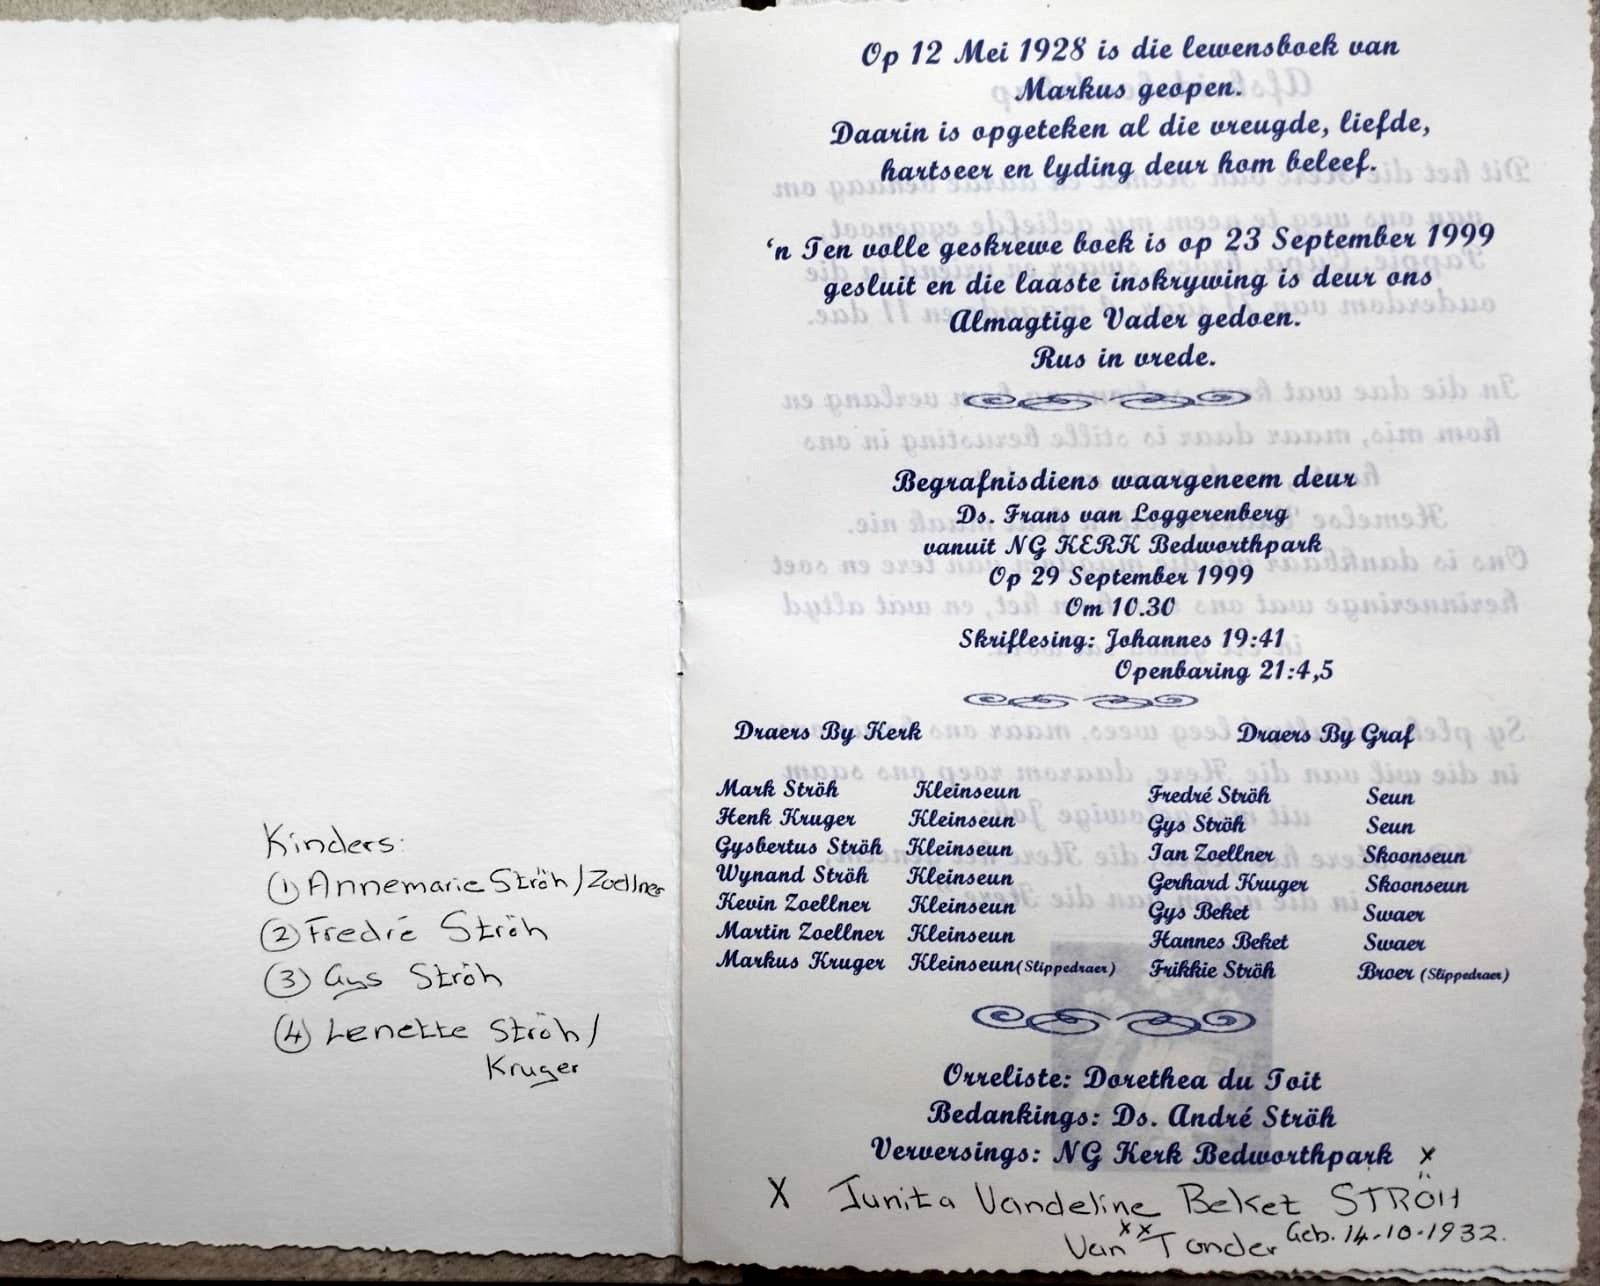 Kinders:
① Annemarie Ströh/Zoellner
② Fredré Ströh
③ Gys Ströh
④ Lenette Ströh/
Kruger
Op 12 Mei 1928 is die lewensboek van
Markus geopen.
Daarin is opgeteken al die vreugde, liefde,
hartseer en lyding deur hom beleef.
'n Ten volle geskrewe boek is op 23 September 1999
gesluit en die laaste inskrywing is deur ons
Almagtige Vader gedoen.
Rus in vrede.
Begrafnisdiens waargeneem deur
Ds. Frans van Loggerenberg
vanuit NG KERK Bedworthpark
Op 29 September 1999
Om 10.30
Skriflesing: Johannes 19:41
Openbaring 21:4,5
Draers By Kerk Draers By Graf
Mark Ströh Kleinseun Fredré Ströh Seun
Henk Kruger Kleinseun Gys Ströh Seun
Gysbertus Ströh Kleinseun Ian Zoellner Skoonseun
Wynand Ströh Kleinseun Gerhard Kruger Skoonseun
Kevin Zoellner Kleinseun Gys Beket Swaer
Martin Zoellner Kleinseun Hannes Beket Swaer
Markus Kruger Kleinseun(Slippedraer) Frikkie Ströh Broer (Slippedraer)
Orreliste: Dorethea du Toit
Bedankings: Ds. André Ströh
Verversings: NG Kerk Bedworthpark x
X Junita Vandeline Beket STRÖH
xx
Van Tonder Geb. 14-10-1932.